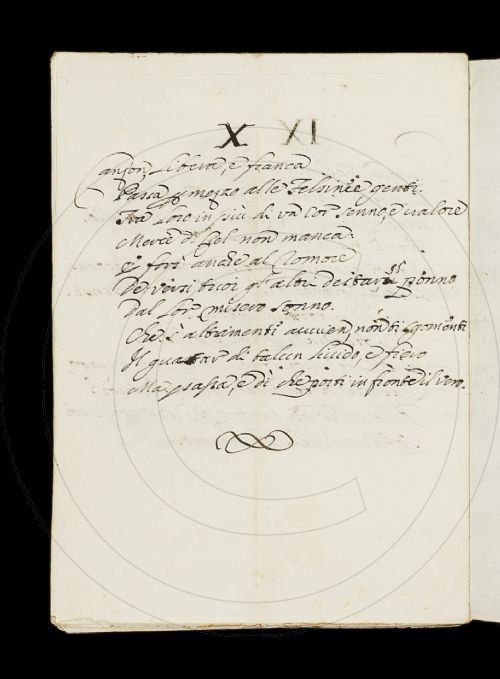 X XI
Canzon, libera, e franca
Passa p mezzo alle Felsinee genti.
Tra loro in più di un Cor Senno, e valore
Mercè di Ciel non manca.
E forsi anche al
De versi tuoi gl'altri destarsi ponno
Dal lor misero sonno.
Che s'altramenti avvien, non ti sgomenti
Il guattar di talun livido, e fiero
Ma passa, e dì che porti in fronte il vero.